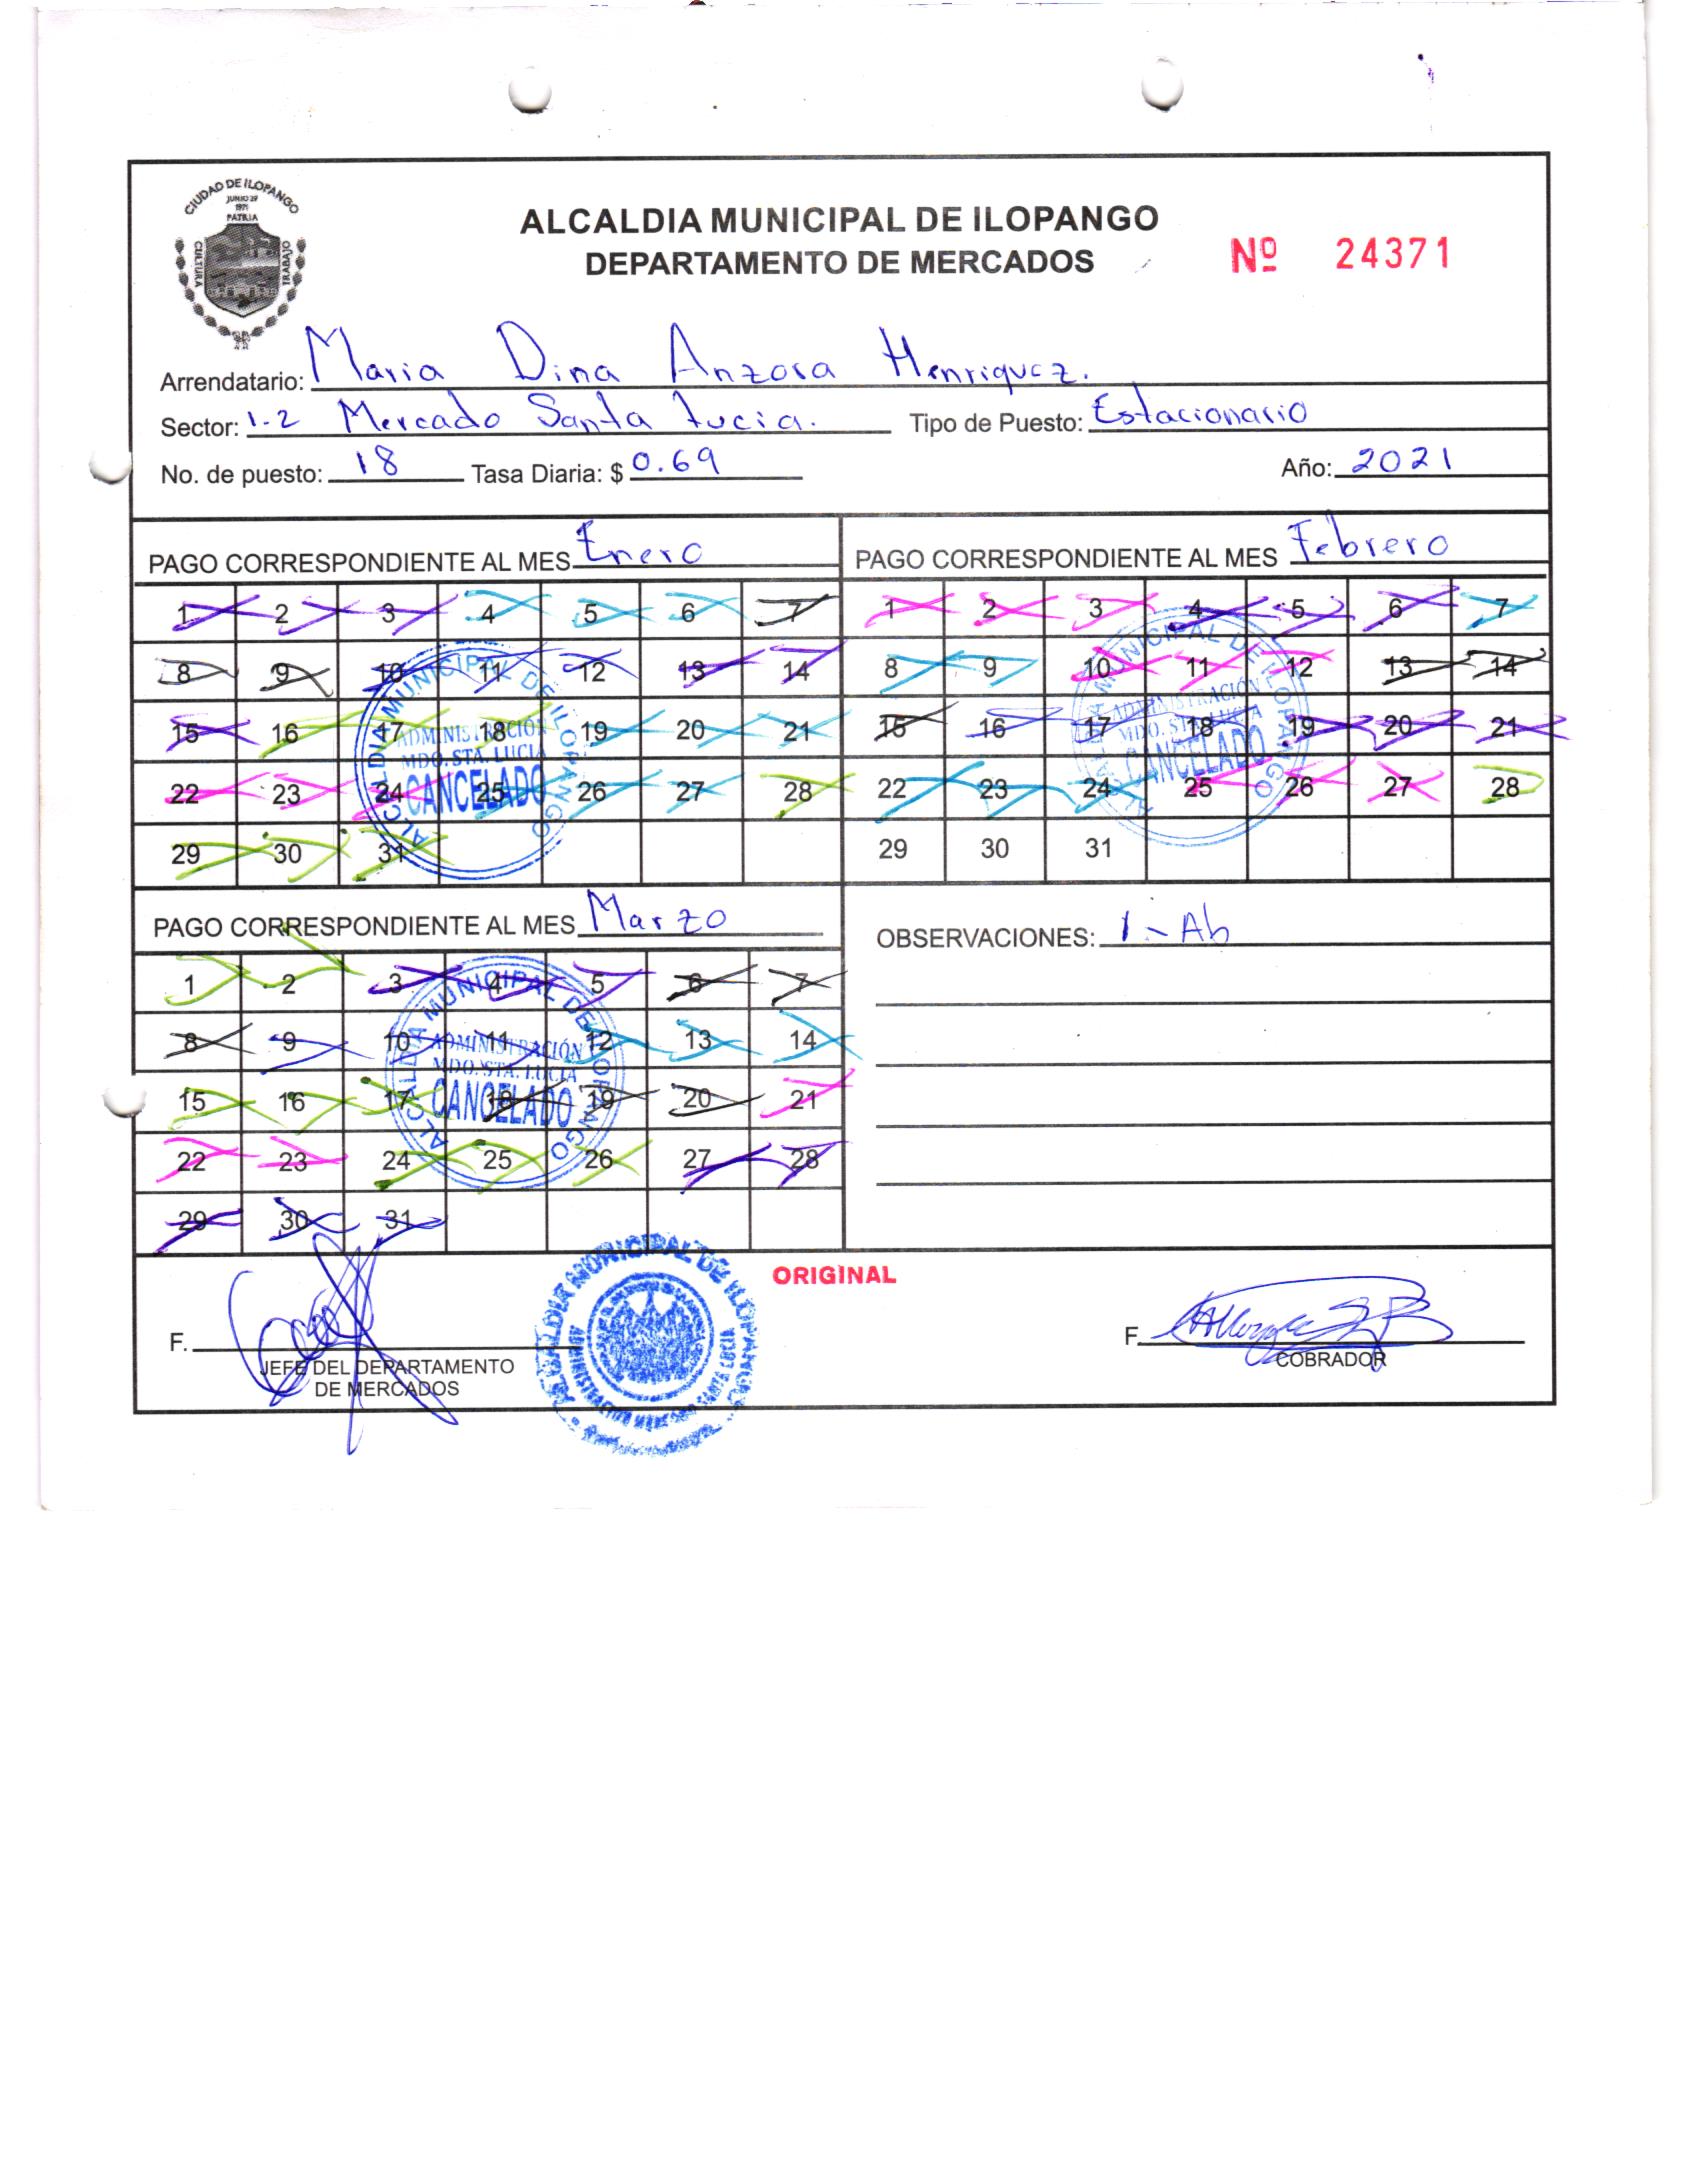 CIUDAD DE ILOPANGO
JUNIO 29
1971
PATRIA
CULTURA
TRABAJO
ALCALDIA MUNICIPAL DE ILOPANGO
DEPARTAMENTO DE MERCADOS
Nº 24371
Arrendatario: Maria Dina Anzora Henriquez.
Sector: 1-2 Mercado Santa Lucia. Tipo de Puesto: Estacionario
No. de puesto: 18 Tasa Diaria: $ 0.69 Año: 2021
PAGO CORRESPONDIENTE AL MES Enero
1 2 3 4 5 6 7
8 9 10 11 12 13 14
15 16 17 18 19 20 21
22 23 24 25 26 27 28
29 30 31
ALCALDIA MUNICIPAL DE ILOPANGO
ADMINISTRACIÓN
MDO. STA. LUCIA
CANCELADO
PAGO CORRESPONDIENTE AL MES Febrero
1 2 3 4 5 6 7
8 9 10 11 12 13 14
15 16 17 18 19 20 21
22 23 24 25 26 27 28
29 30 31
ALCALDIA MUNICIPAL DE ILOPANGO
ADMINISTRACIÓN
MDO. STA. LUCIA
CANCELADO
PAGO CORRESPONDIENTE AL MES Marzo
1 2 3 4 5 6 7
8 9 10 11 12 13 14
15 16 17 18 19 20 21
22 23 24 25 26 27 28
29 30 31
ALCALDIA MUNICIPAL DE ILOPANGO
ADMINISTRACIÓN
MDO. STA. LUCIA
CANCELADO
OBSERVACIONES: 1-Ab
ORIGINAL
F.
JEFE DEL DEPARTAMENTO
DE MERCADOS
ALCALDIA MUNICIPAL DE ILOPANGO
F.
COBRADOR